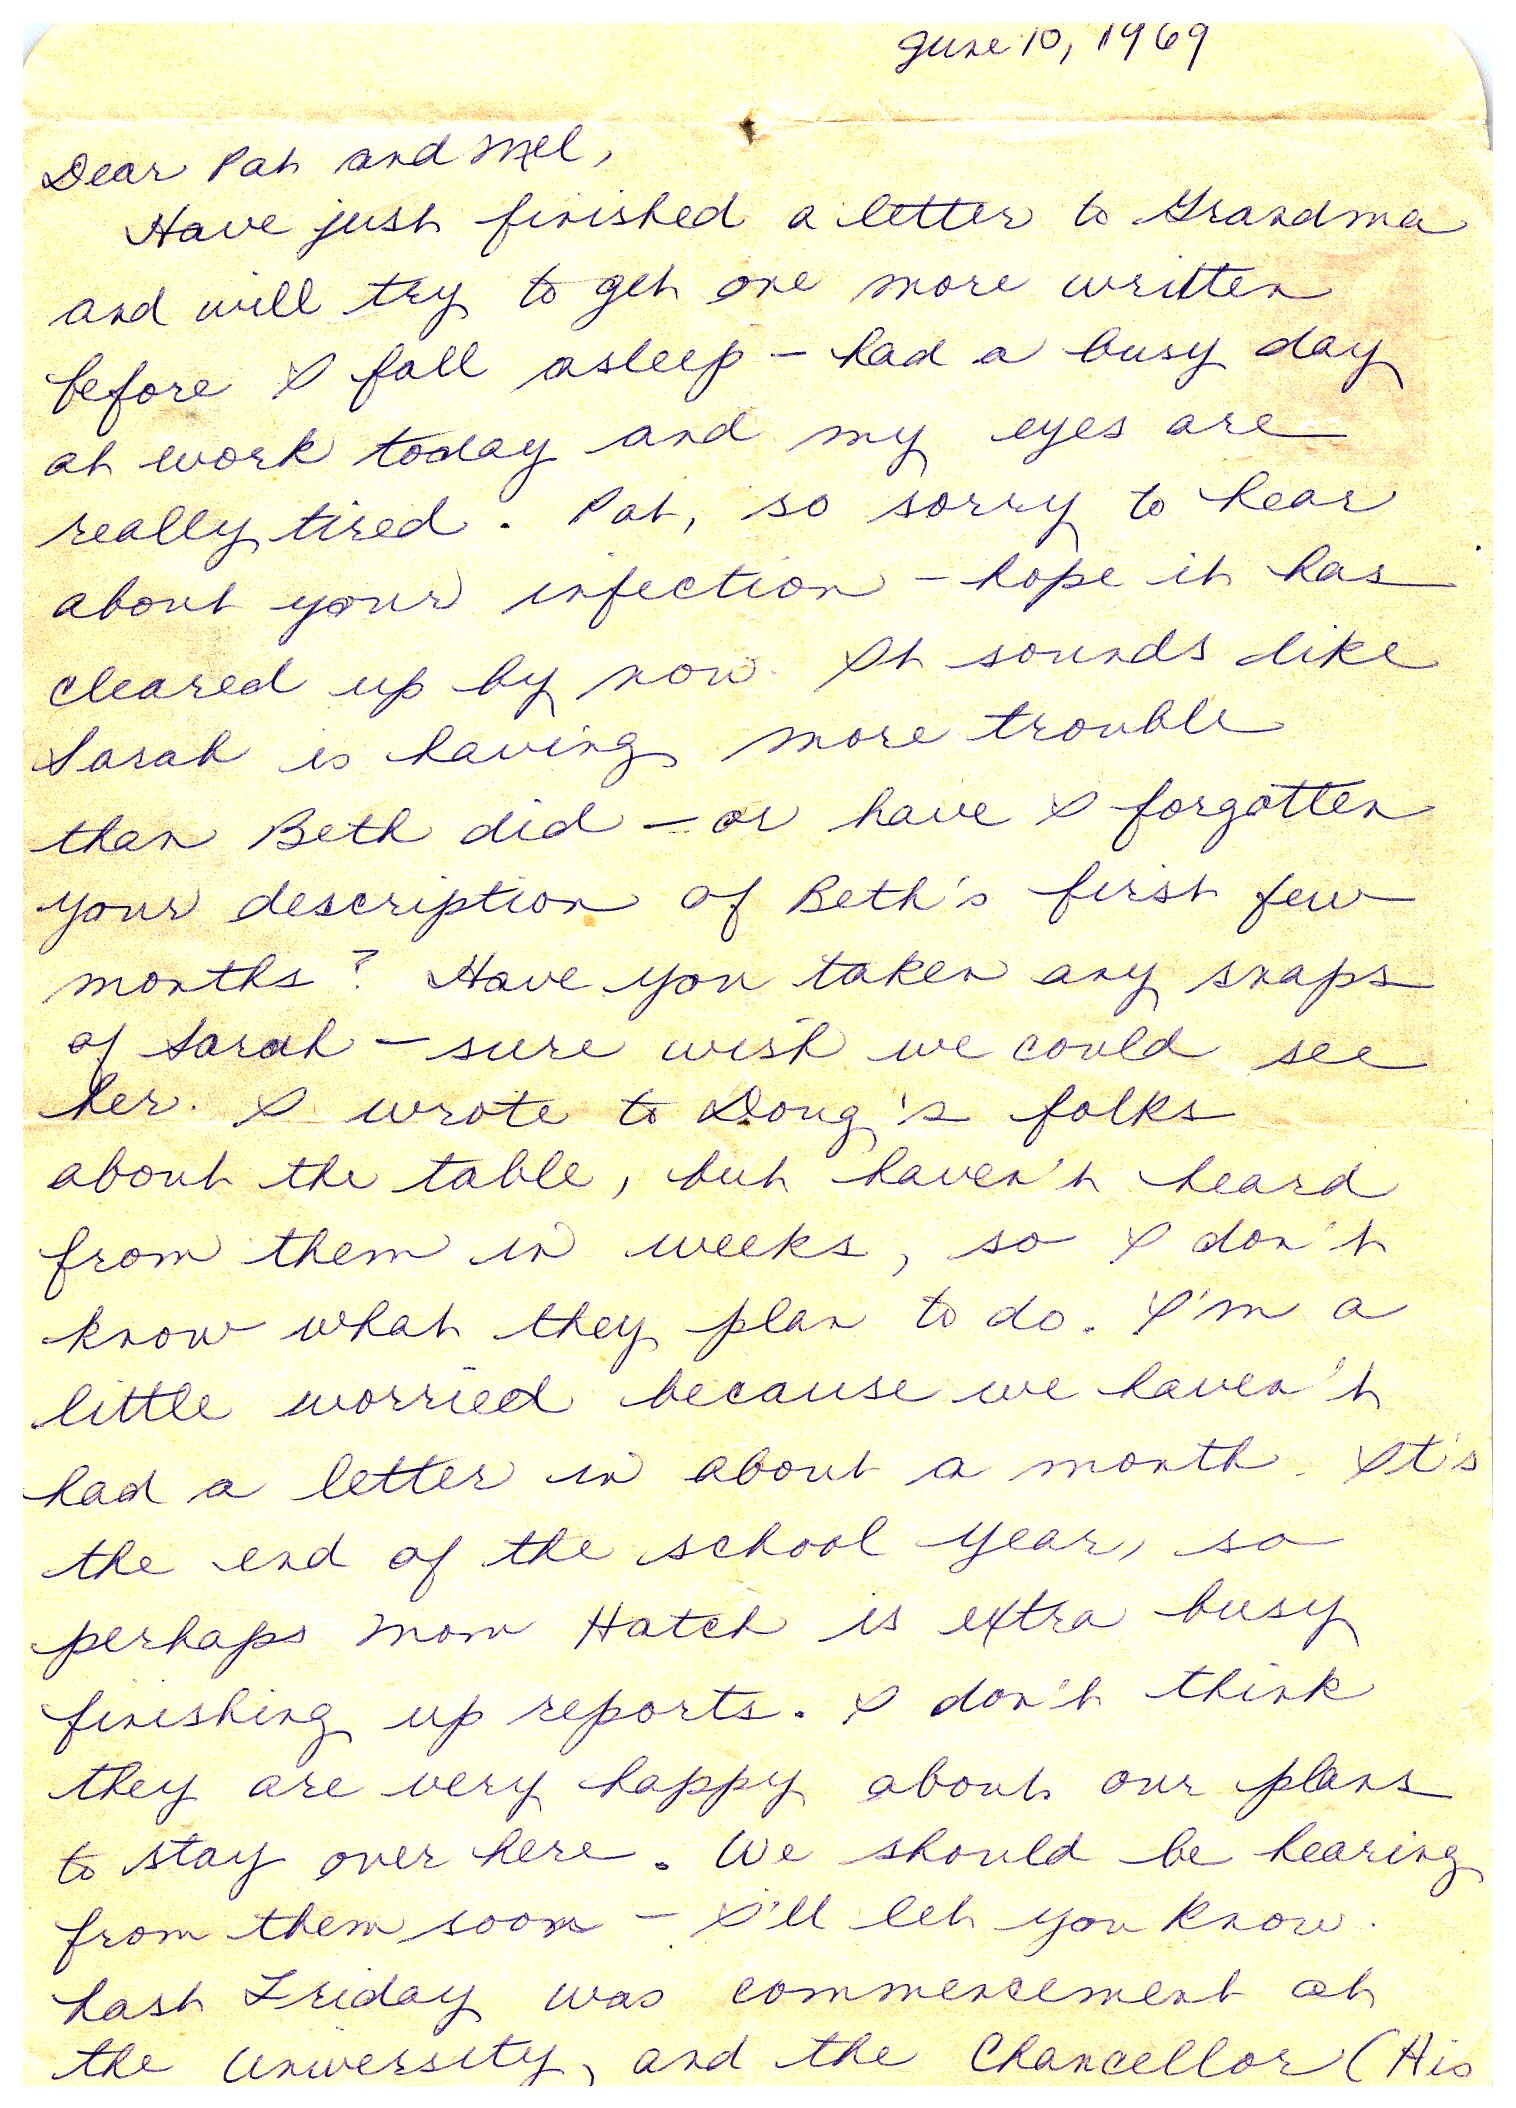 June 10, 1969
Dear Pat and Mel,
Have just finished a letter to Grandma
and will try to get one more written
before I fall asleep – had a busy day
at work today and my eyes are
really tired. Pat, so sorry to hear
about your infection – hope it has
cleared up by now. It sounds like
Sarah is having more trouble
than Beth did – or have I forgotten
your description of Beth's first few
months? Have you taken any snaps
of Sarah – sure wish we could see
her. I wrote to Doug's folks
about the table, but haven't heard
from them in weeks, so I don't
know what they plan to do. I'm a
little worried because we haven't
had a letter in about a month. It's
the end of the school year, so
perhaps Mom Hatch is extra busy
finishing up reports. I don't think
they are very happy about our plans
to stay over here. We should be hearing
from them soon – I'll let you know.
Last Friday was commencement at
the University, and the Chancellor (His